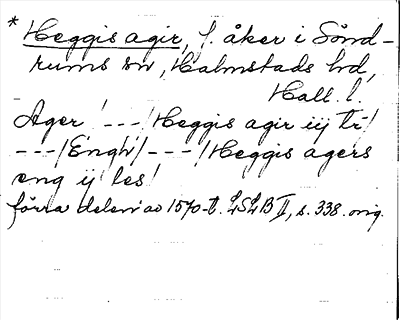 * Heggis agir, f. åker i Sönd-
rums sn, Halmstads hd,
Hall. l.
Ager! ---/Heggis agir iij tr/
---/Engh/---/Heggis agers
eng ij les!
förra delen av 1570-t. LSLB II, s. 338. orig.